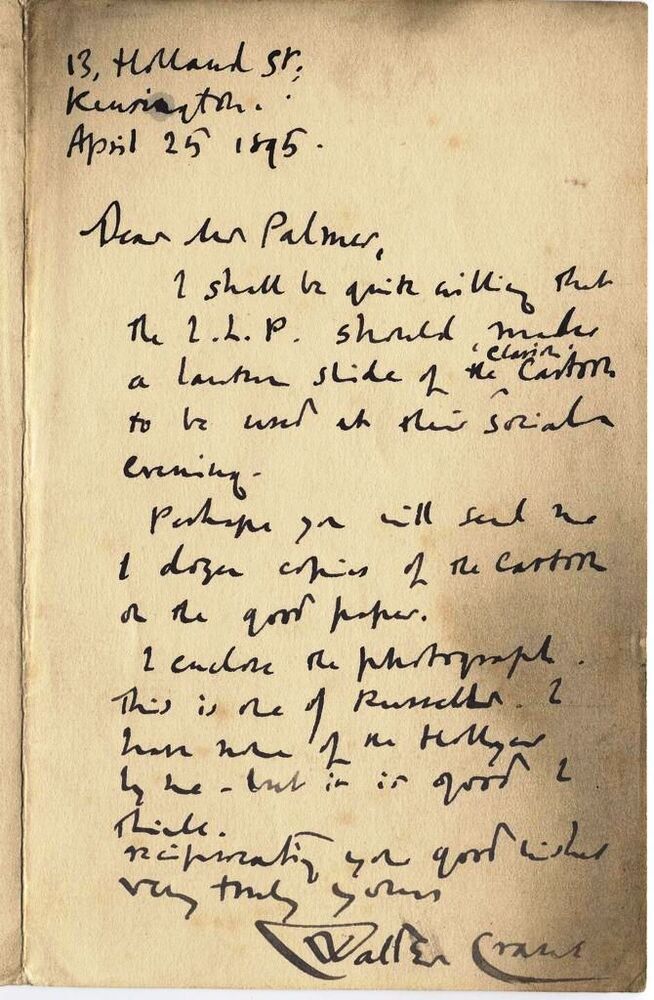 13, Holland St,
Kensington.
April 25 1895.
Dear Mr Palmer,
I shall be quite willing that
the I.L.P. should make
'Clarion'
a lantern slide of the Cartoon
to be used at their social
evening.
Perhaps you will send me
1 dozen copies of the Cartoon
on the good paper.
I enclose the photograph.
This is one of Russells. I
have none of the Hollyer
by me – but it is good I
think.
reciprocating your good wishes
very truly yours
Walter Crane